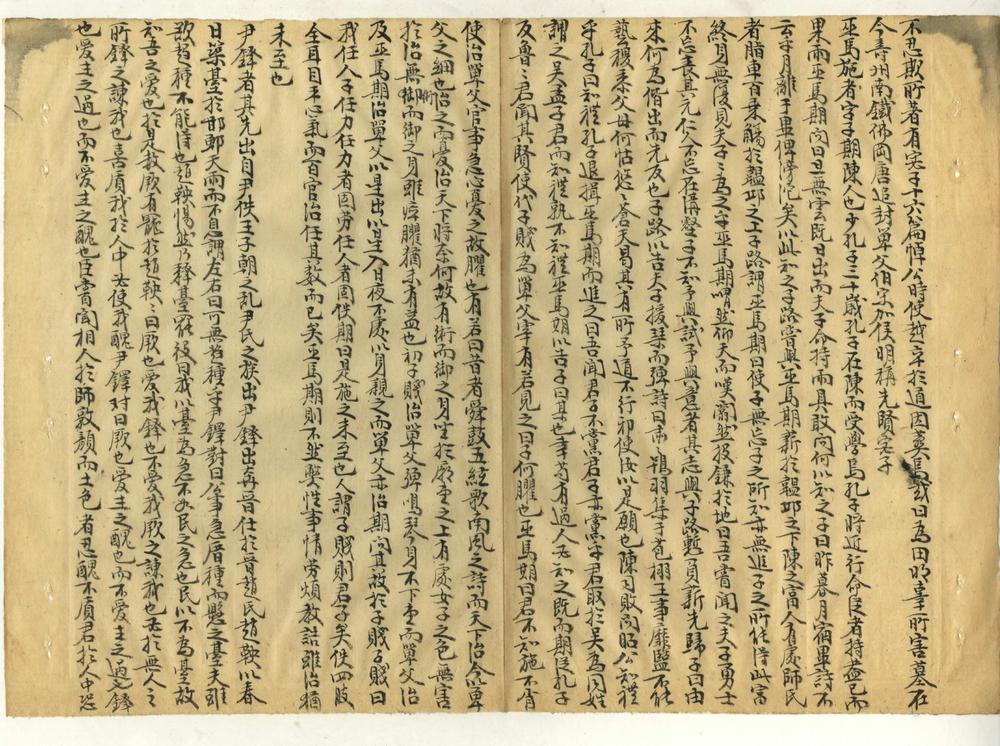 不忍欺所者有宓子十六篇悼公時使越卒於道因葬焉或曰為田明畢所害墓在
今壽州南鐵佛岡唐追封單父伯宋加侯明稱先賢宓子
巫馬施者字子期陳人也少孔子三十歲孔子在陳而受學焉孔子將近行命從者持蓋已而
果雨巫馬期問曰旦無雲既日出而夫子命持雨具敢問何以知之子曰昨暮月宿畢詩不
云乎月離于畢俾滂沱矣以此知之子路嘗與巫馬期薪於韞邱之下陳之富人有處師氏
者脂車百乘觴於韞邱之上子路謂巫馬期曰使子無忘子之所知亦無進子之所能得此富
終身無復見夫子子為之乎巫馬期喟然仰天而嘆闟然投鎌於地曰吾嘗聞之夫子勇士
不忘喪其元仁人不忘在溝壑子不知予與試予與意者其志與子路慙負薪先歸子曰由
來何為偕出而先反也子路以告夫子援琴而彈詩曰肅肅鴇羽集于苞栩王事靡盬不能
藝稷黍父母何怙悠悠蒼天曷其有所予道不行邪使汝以是願也陳司敗問昭公知禮
乎孔子曰知禮孔子退揖巫馬期而進之曰吾聞君子不黨君子亦黨乎君取於吳為同姓
謂之吳孟子君而知禮孰不知禮巫馬期以告子曰某也幸苟有過人必知之既而期從孔子
反魯魯君聞其賢使代子賤為單父宰有若見之曰子何臞也巫馬期曰君不知施不肖
使治單父官事急心憂之故臞也有若曰昔者舜鼓五絃歌南風之詩而天下治今單
父之細也治之而憂治天下將奈何故有術而御之身坐於廟堂之上有處女子之色無害
於治無術而御之身雖瘁臞猶未有益也初子賤治單父彈鳴琴身不下堂而單父治
及巫馬期治單父以星出以星入日夜不處以身親之而單父亦治期問其故於子賤子賤曰
我任人子任力任力者固勞任人者固佚期曰是施之未至也人謂子賤則君子矣佚四肢
全耳目平心氣而百官治任其數而已矣巫馬期則不然獘性事情勞煩教詔雖治猶
未至也
尹鐸者其先出自尹佚王子朝之亂尹氏之族出尹鐸出奔晉仕於晉趙氏趙鞅以春
日築臺於邯鄲天雨而不息謂左右曰可無趨種乎尹鐸對曰公事急厝種而懸之臺夫雖
欲趨種不能得也趙鞅惕然乃釋臺罷役曰我以臺為急不如民之急也民以不為臺故
知吾之愛也於是赦厥有寵於趙鞅鞅曰厥也愛我鐸也不愛我厥之諫我也必於無人之
所鐸之諫我也喜質我於人中必使我醜尹鐸對曰厥也愛主之醜也而不愛主之過也鐸
也愛主之過也而不愛主之醜也臣嘗聞相人於師敦顏而土色者忍醜不質君於人中恐